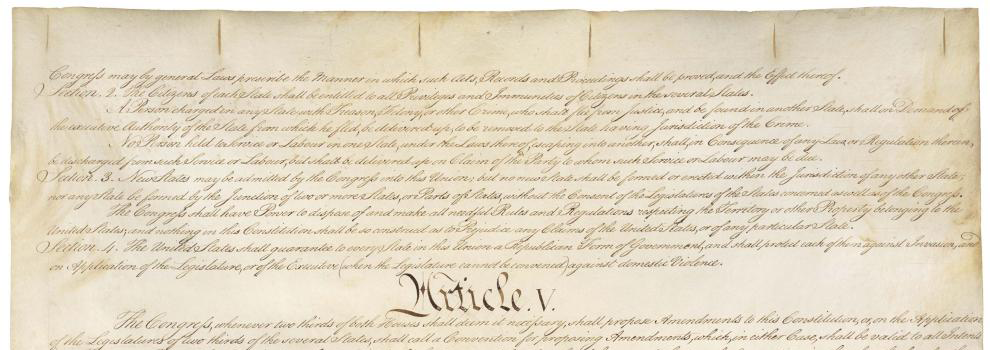 Congress may by general Laws prescribe the Manner in which such Acts, Records and Proceedings shall be proved, and the Effect thereof.
Section. 2. The Citizens of each State shall be entitled to all Privileges and Immunities of Citizens in the several States.
A Person charged in any State with Treason, Felony, or other Crime, who shall flee from Justice, and be found in another State, shall on Demand of
the executive Authority of the State from which he fled, be delivered up, to be removed to the State having Jurisdiction of the Crime.
No Person held to Service or Labour in one State, under the Laws thereof, escaping into another, shall, in Consequence of any Law or Regulation therein,
be discharged from such Service or Labour, but shall be delivered up on Claim of the Party to whom such Service or Labour may be due.
Section. 3. New States may be admitted by the Congress into this Union; but no new State shall be formed or erected within the Jurisdiction of any other State;
nor any State be formed by the Junction of two or more States, or Parts of States, without the Consent of the Legislatures of the States concerned as well as of the Congress.
The Congress shall have Power to dispose of and make all needful Rules and Regulations respecting the Territory or other Property belonging to the
United States; and nothing in this Constitution shall be so construed as to Prejudice any Claims of the United States, or of any particular State.
Section. 4. The United States shall guarantee to every State in this Union a Republican Form of Government, and shall protect each of them against Invasion; and
on Application of the Legislature, or of the Executive (when the Legislature cannot be convened) against domestic Violence.
Article. V.
The Congress, whenever two thirds of both Houses shall deem it necessary, shall propose Amendments to this Constitution, or, on the Application
of the Legislatures of two thirds of the several States, shall call a Convention for proposing Amendments, which, in either Case, shall be valid to all Intents